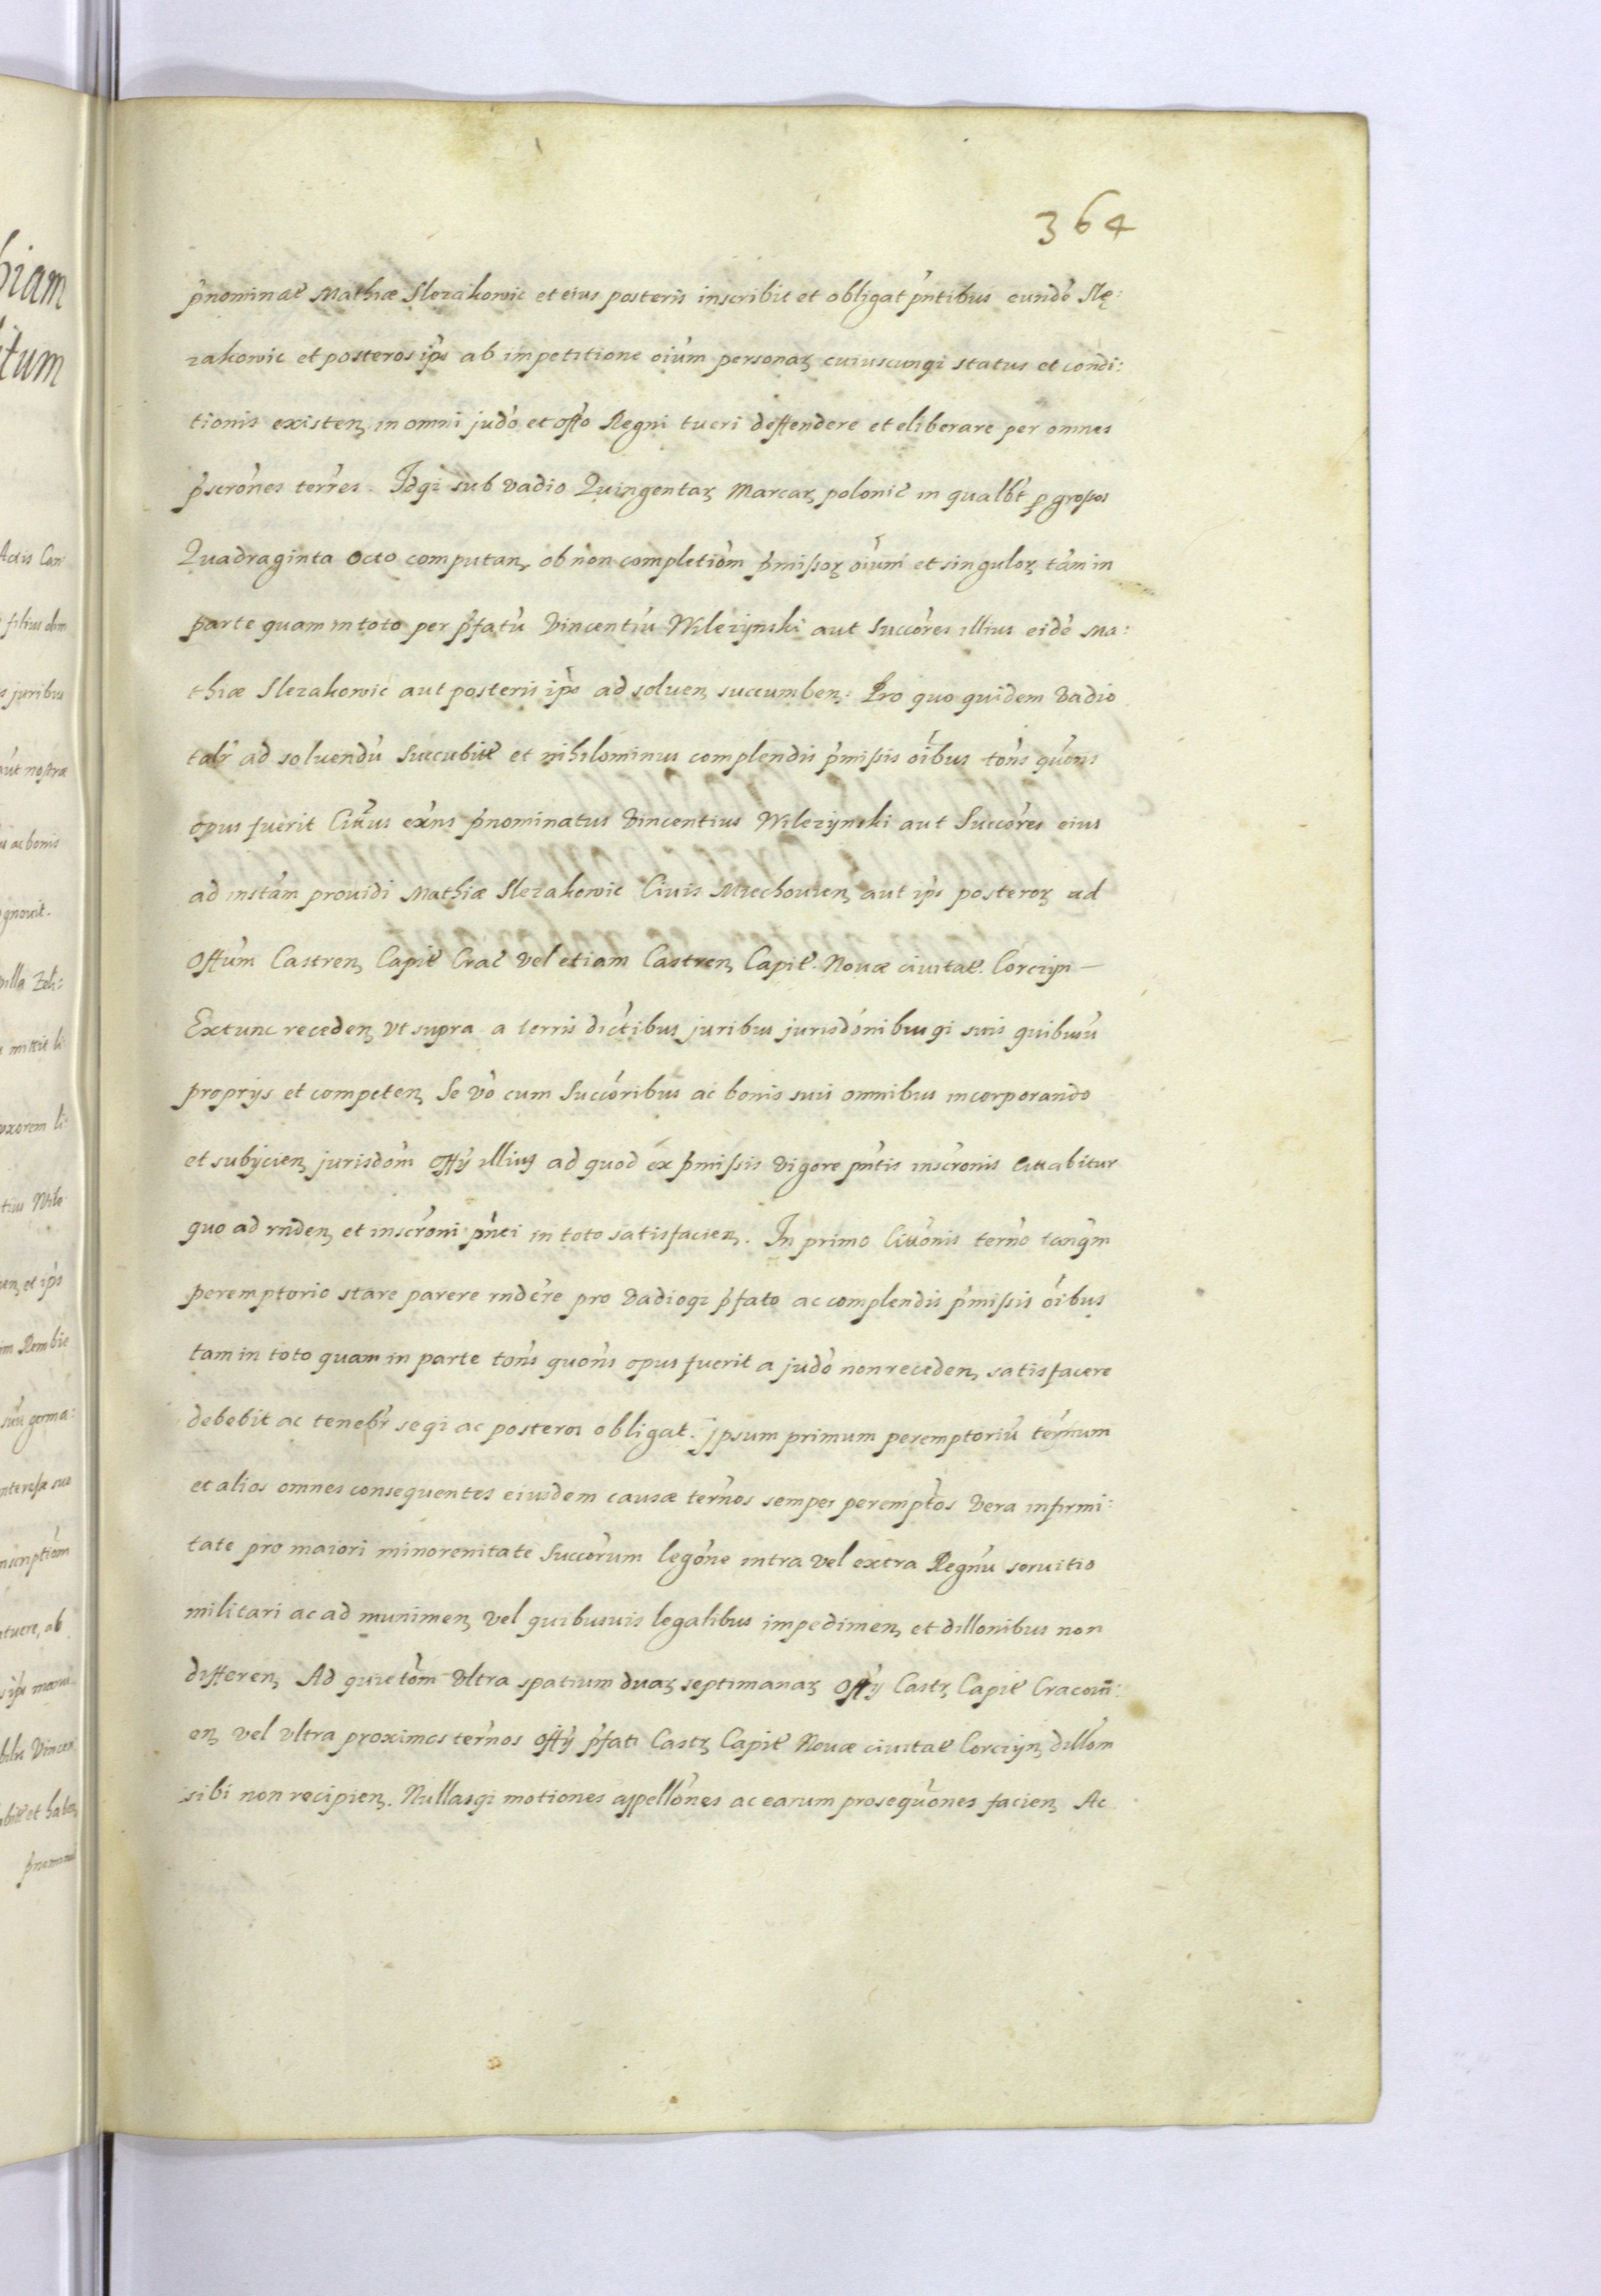 364
p̃nominat̃ Mathiæ Slezakowic et eius posteris inscribit et obligat p̃ntibus eundẽ Slę:
zakowic et posteros ip̃s ab impetitione oĩum personaꝝ cuiuscunqꝫ status et condi:
tionis existenꝫ in omni judõ et offõ Regni tueri deffendere et eliberare per omnes
p̃scrõnes terr̃es. Idqꝫ sub vadio Quingentaꝝ Marcaꝝ polonic̃ in qualbt̃ ꝑ grossos
Quadraginta Octo computanꝫ ob non completiõm p̃missoꝝ oĩum et singuloꝝ tam in
parte quam in toto per p̃fatũ Vincentiũ Wilczÿnski aut Succõres illius eidẽ Ma:
thiæ Slezakowic aut posteris ip̃s ad soluenꝫ succumbenꝫ: Pro quo quidem vadio
talr̃ ad soluendũ Succubit̃ et nihilominus complendis p̃missis oĩbus tõns quõns
opus fuerit Citt̃us ex̃ns p̃nominatus Vincentius Wilczÿnski aut Succõres eius
ad instãm prouidi Mathiæ Slezakowic Ciuis Miechouienꝫ aut ip̃s posteroꝝ ad
Offũm Castrenꝫ Capit̃ Crac̃ vel etiam Castrenꝫ Capit̃. Nouæ ciuitat̃. Corczÿn —
Extunc recedenꝫ vt supra a terris dic̃tibus juribus jurisdõnibusqꝫ suis quibusũ
proprÿs et competenꝫ Se võ cum Succõribus ac bonis suis omnibus incorporando
et subÿcienꝫ jurisdõm Offÿ illius ad quod ex p̃missis vigore p̃ntis inscrõnis Cittabitur
quo ad rñdenꝫ et inscrõni p̃nti in toto satisfacienꝫ. In primo Cittõnis ter̃no tanq̃m
peremptorio stare parere rñdere pro vadioqꝫ p̃fato ac complendis p̃missis oĩbus
tam in toto quam in parte tõns quõns opus fuerit a judõ non recedenꝫ satisfacere
debebit ac tenebr̃ seqꝫ ac posteros obligat. Ipsum primum peremptoriũ ter̃num
et alios omnes consequentes eiusdem causæ ter̃nos semper perempt̃os vera infirmi:
tate pro maiori minorenitate Succõrum legõne intra vel extra Regnũ seruitio
militari ac ad munimenꝫ vel quibusuis legalibus impedimenꝫ et dillonibus non
differenꝫ Ad quietõm vltra spatium duaꝝ septimanaꝝ Offÿ Castꝝ Capit̃ Cracoui:
enꝫ vel vltra proximos ter̃nos offÿ p̃fati Castꝝ Capit̃ Nouæ ciuitat̃ Corczÿnꝫ dillõm
sibi non recipienꝫ. Nullasqꝫ motiones appellõnes ac earum prosequõnes facienꝫ Ac